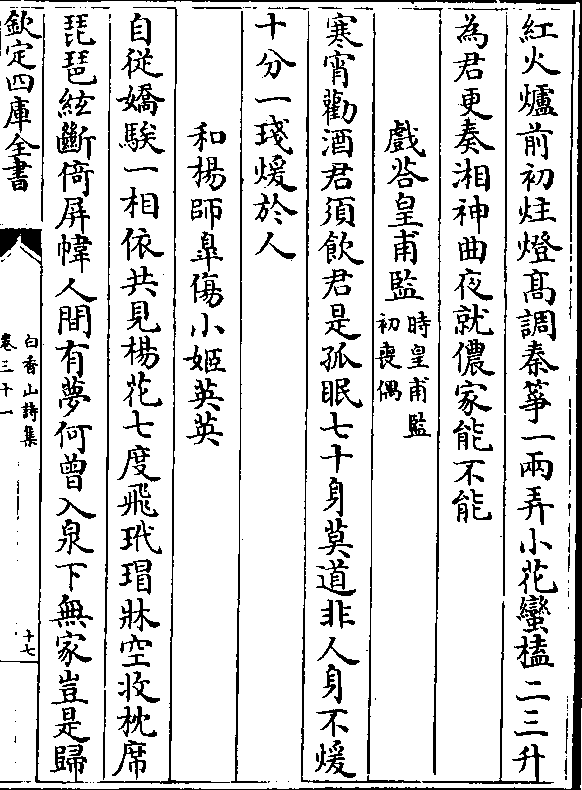 紅火爐前初炷燈高調秦箏一兩弄小花蠻榼二三升
為君更奏湘神曲夜就儂家能不能
戲答皇甫監時皇甫監初喪偶
寒宵勸酒君須飲君是孤眠七十身莫道非人身不煖
十分一琖煖於人
和楊師臯傷小姬英英
自從嬌騃一相依共見楊花七度飛玳瑁牀空收枕席
琵琶絃斷倚屏幃人間有夢何曾入泉下無家豈是歸
欽定四庫全書
白香山詩集
卷三十一
十七